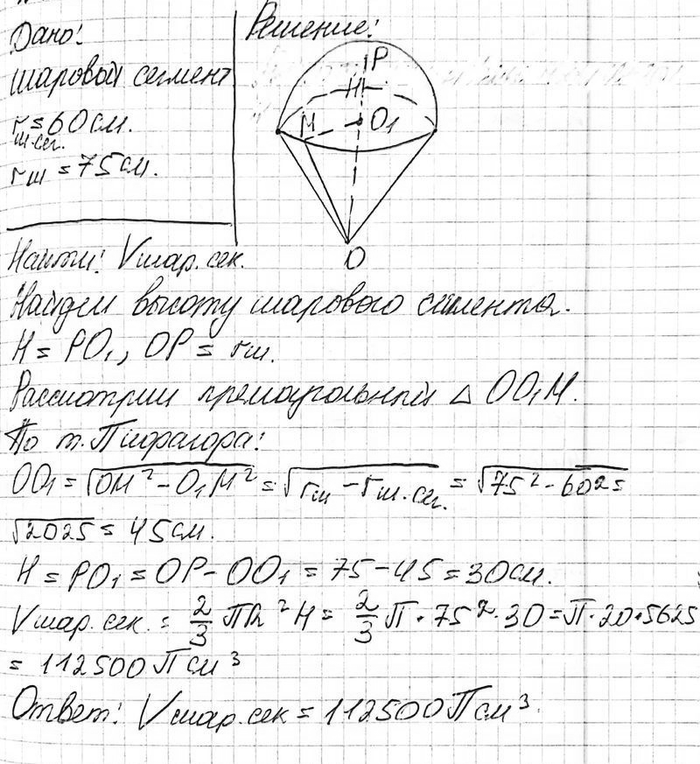 Дано:
шаровый сегмент
r ш.сег. = 60 см.
rш = 75 см.
Решение:
P
H
M
O₁
O
Найти: Vшар. сек.
Найдем высоту шарового сегмента.
H = PO₁, OP = rш.
Рассмотрим прямоугольный △ OO₁M.
По т. Пифагора:
OO₁ = √OM² - O₁M² = √rш - rш.сег. = √75² - 60² =
√2025 = 45 см.
H = PO₁ = OP - OO₁ = 75 - 45 = 30 см.
Vшар. сек. = 2/3 ПR²H = 2/3 П · 75² · 30 = П · 20 · 5625
= 112500 П см³
Ответ: Vшар. сек = 112500 П см³.